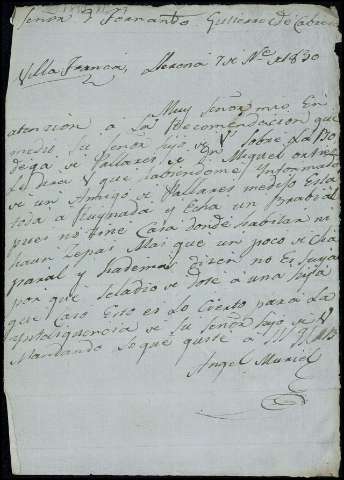 Señor Dn Fernando Gutierre de Cabrer
Villa Franca, Llerena 7 de Nbe de 1830
Muy Señor mio En
atension a la Recomendacion que
medio su Señor Hijo de V sobre la Bo
dega de Pallares de Dn Miguel
Le dire V que habiendome Informado
de un Amigo de Pallares medise Esta
toda a Ruynada y Echa un
pues no tiene Casa donde habitar ni
mas que un poco de Cha
paral y hademas disen no Es suya
por que seladio de Dote a una Hija
que Caso Esto es lo Cierto para la
Ynteligencia de su Señor Hijo de V
Mandando lo que guste a
Angel Muriel